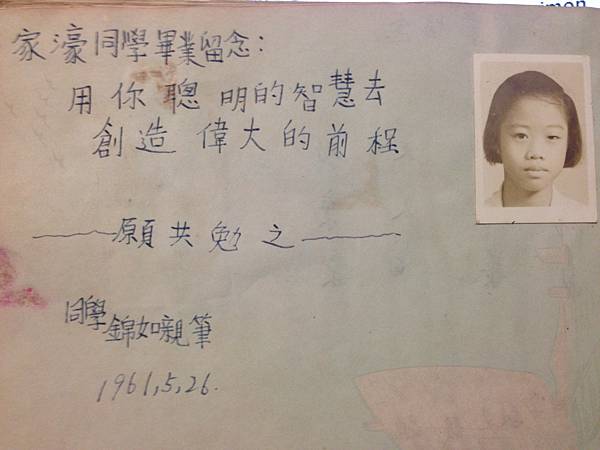 家濠同學畢業留念：
用你聰明的智慧去
創造偉大的前程
願共勉之
同學錦如親筆
1961,5,26.